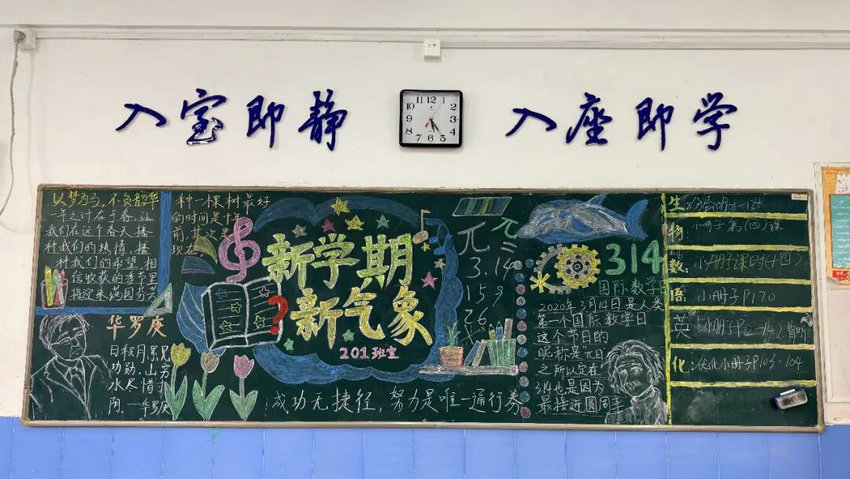 入室即静
入座即学
12
11
1
10
2
9
3
8
4
7
6
5
以梦为马,不负韶华
一年之计在于春,让
我们在这个春天,播
种我们的热情,播
种我们的希望,相
信收获的季节里
种一棵树最好
的时间是十年
前,其次是
现在
华罗庚
日秋月
功勋,山方
水尽 惜寸
阴.一华罗庚
新学期
新气象
201班宣
成功无捷径,努力是唯一通行券
π
π=
3.14
159
26
314
国际数学日
2020年3月14日是人类
第一个国际数学日
这个节目的
昵称是π日
之所以定在
3.14也是因为
最接近圆周率
生
物
小册子第(四)课
数
小册子课时(十四)
语
小册子P170
英
化
优化小册子P102-104